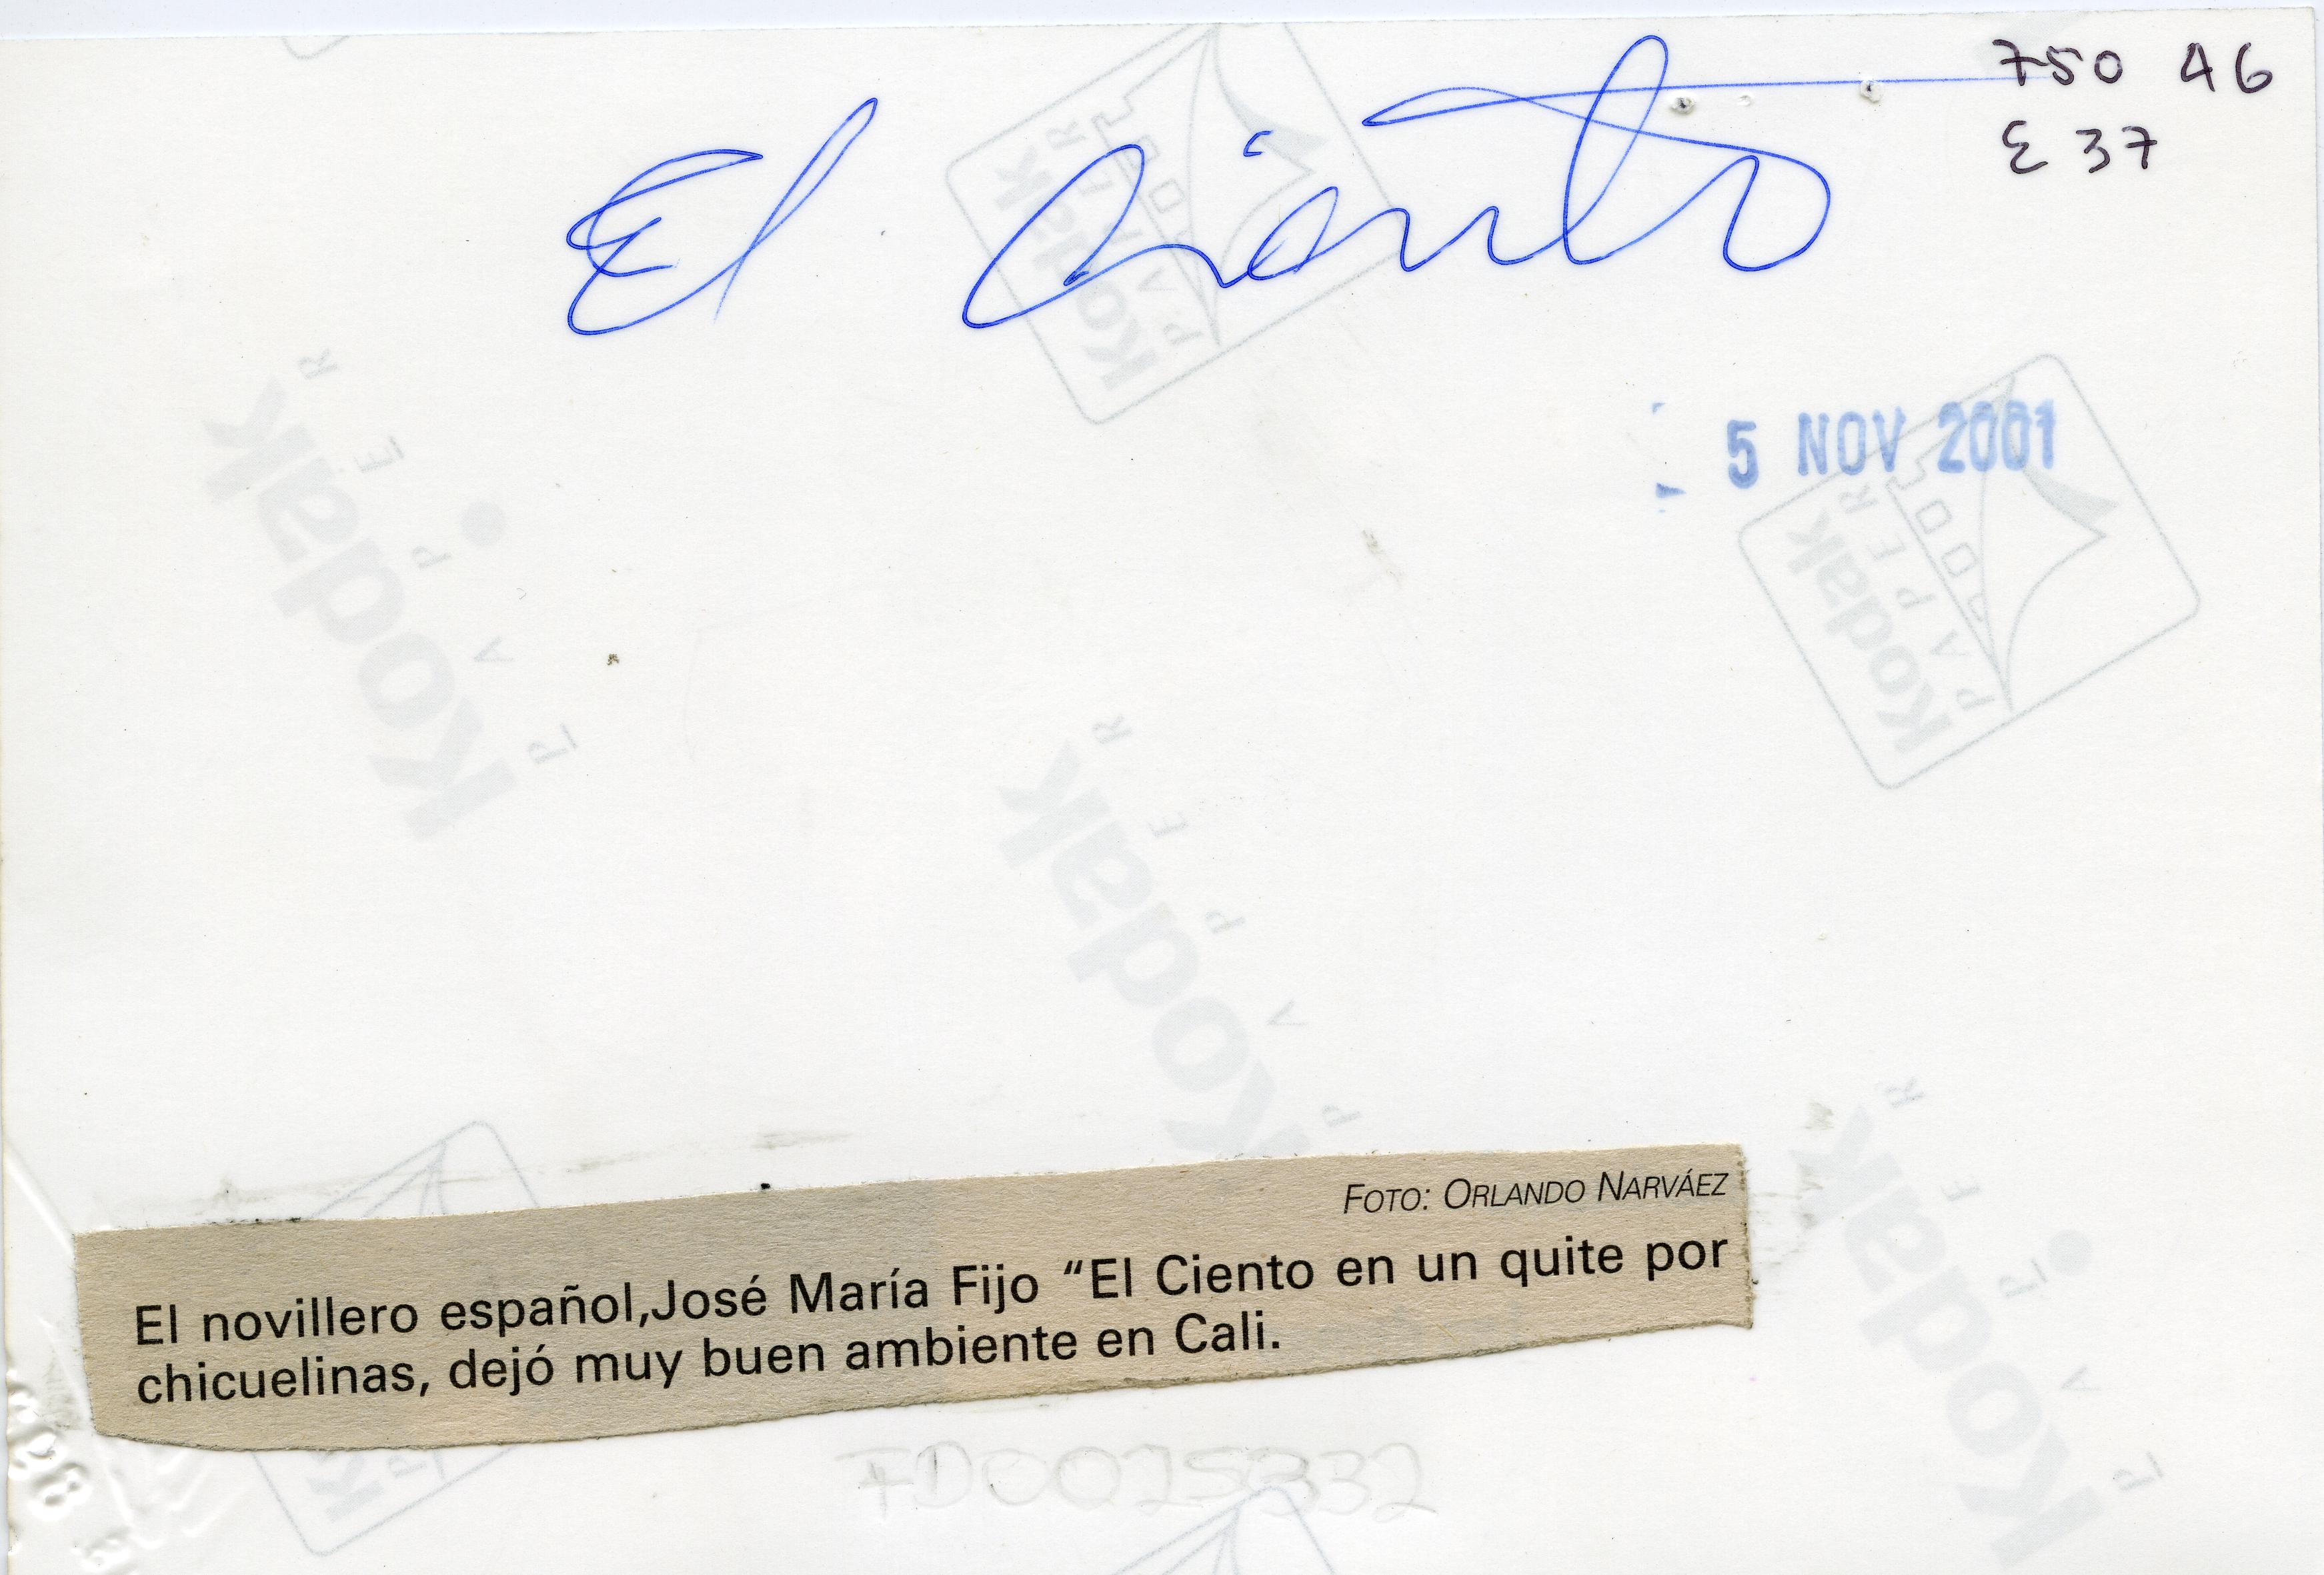 750 A6
E 37
El Ciento
5 NOV 2001
Kodak
PAPER
Kodak
PAPER
Kodak
PAPER
Kodak
PAPER
Kodak
PAPER
FOTO: ORLANDO NARVÁEZ
El novillero español,José María Fijo “El Ciento en un quite por
chicuelinas, dejó muy buen ambiente en Cali.